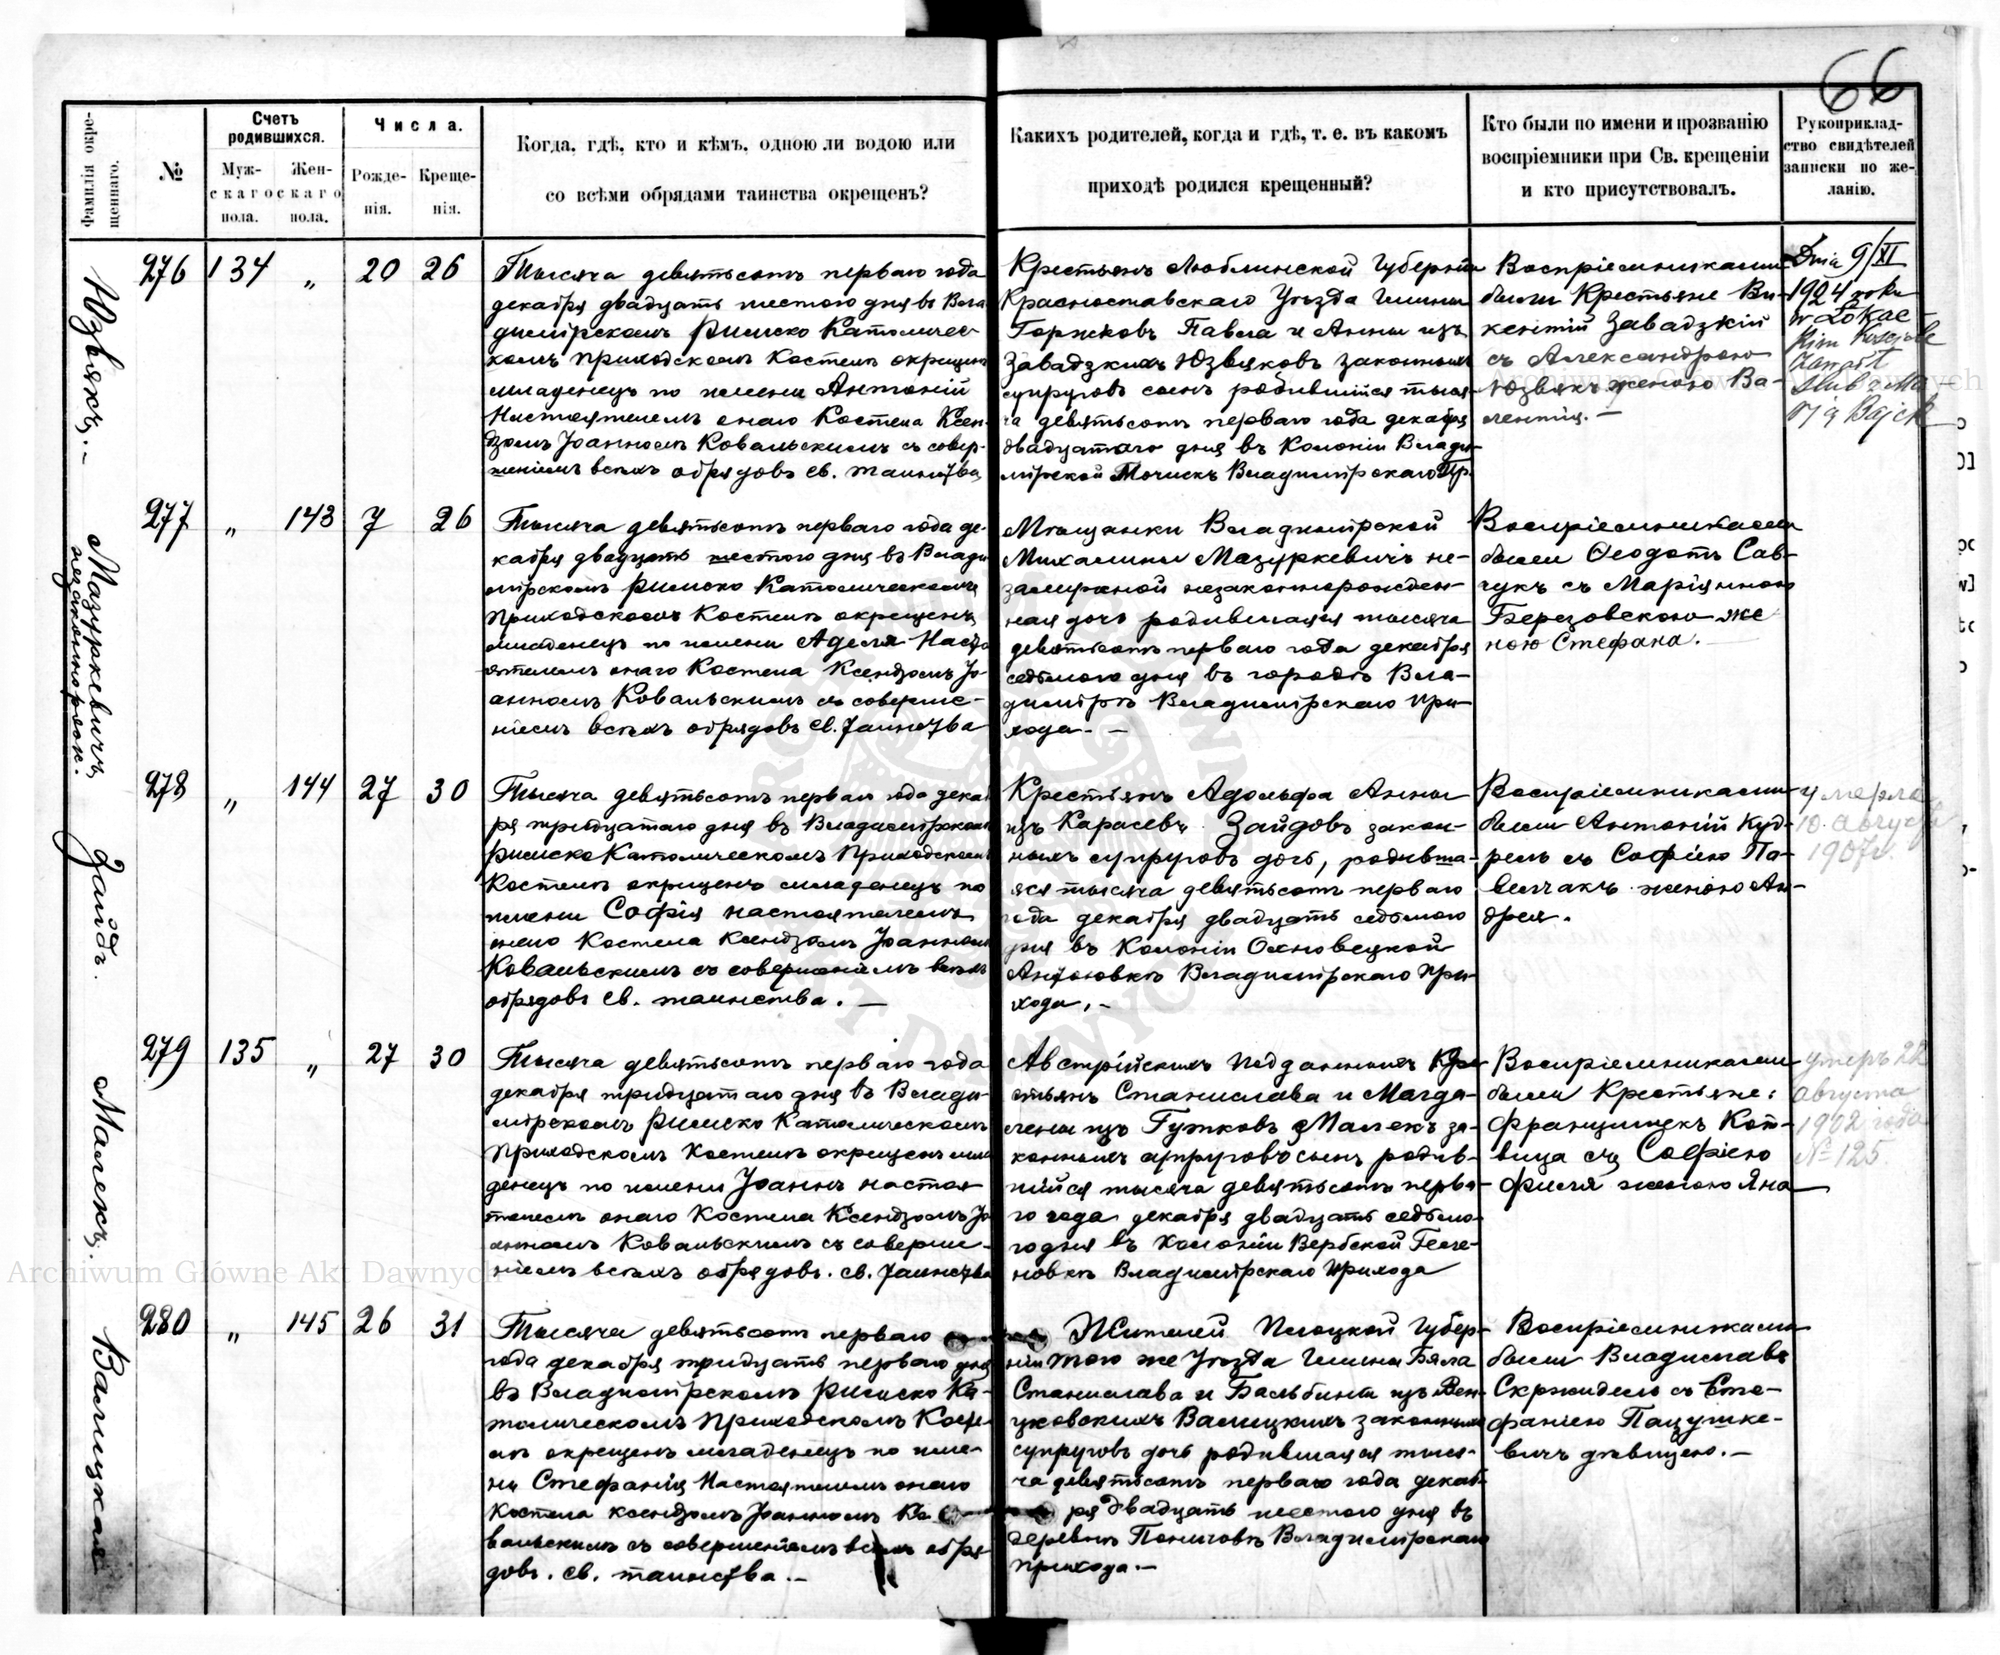 66
Фамилія окре-
щеннаго.
№
Счетъ
родившихся.
Муж-
скаго
пола.
Жен-
скаго
пола.
Числа.
Рожде-
нія.
Креще-
нія.
Когда, гдѣ, кто и кѣмъ, одною ли водою или
со всѣми обрядами таинства окрещенъ?
Какихъ родителей, когда и гдѣ, т. е. въ какомъ
приходѣ родился крещенный?
Кто были по имени и прозванію
воспріемники при Св. крещеніи
и кто присутствовалъ.
Рукоприклад-
ство свидѣтелей
записки по же-
ланію.
Юзвякъ.-
276 134 „ 20 26
Тысяча девятьсотъ перваго года
декабря двадцать шестого дня въ Вла
димірскомъ Римско Католичес-
комъ приходскомъ Костелѣ окрещенъ
младенецъ по имени Антоній
Настоятелемъ онаго Костела Ксен-
дзомъ Іоанномъ Ковальскимъ съ совер-
шеніемъ всѣхъ обрядовъ св. таинства
Крестьянъ Люблинской Губерніи
Красноставскаго Уѣзда Гмины
Горжковъ Павла и Анны изъ
Завадзкихъ Юзвяковъ законныхъ
супруговъ сынъ родившійся тыся-
ча девятьсотъ перваго года декабря
двадцатаго дня въ Колоніи Влади-
мірской Владимірскаго Пр.
Воспріемниками
были Крестьяне Ви-
кентій Завадзкій
съ Александрою
Юзвякъ женою Ва-
лентія. -
Dnia 9/XI
1924 roku
w
ślub z Ma-
rją
Мазуркевичъ
незаконнорож.
277 „ 143 7 26
Тысяча девятьсотъ перваго года де-
кабря двадцать шестого дня въ Влади
мірскомъ Римско Католическомъ
Приходскомъ Костелѣ окрещенъ
младенецъ по имени Аделя Насто
ятелемъ онаго Костела Ксендзомъ Іо-
анномъ Ковальскимъ съ соверше-
ніемъ всѣхъ обрядовъ св. Таинства
Мѣщанки Владимірской
Михалины Мазуркевичъ не-
замужной незаконнорожден-
ная дочь родившаяся тысяча
девятьсотъ перваго года декабря
седьмого дня въ городѣ Вла-
димірѣ Владимірскаго при-
хода. -
Воспріемниками
были Ѳеодотъ Сав-
чукъ съ Маріянною
Березовскою же
ною Стефана.
Зайдъ.
278 „ 144 27 30
Тысяча девятьсотъ перваго года декаб
ря тридцатаго дня въ Владимірскомъ
Римско Католическомъ Приходскомъ
Костелѣ окрещенъ младенецъ по
имени Софія настоятелемъ
онаго Костела Ксендзомъ Іоанномъ
Ковальскимъ съ совершеніемъ всѣхъ
обрядовъ св. таинства. -
Крестьянъ Адольфа Анны
изъ Карасевъ Зайдовъ закон-
ныхъ супруговъ дочь, родивша-
яся тысяча девятьсотъ перваго
года декабря двадцать седьмого
дня въ Колоніи Охновецкой
Антоновкѣ Владимірскаго При-
хода. -
Воспріемниками
были Антоній Куд-
рель съ Софіею Па-
велчакъ женою Ан-
дрея.
умерла
10. Августа
1907г.
Малекъ.
279 135 „ 27 30
Тысяча девятьсотъ перваго года
декабря тридцатаго дня въ Влади-
мірскомъ Римско Католическомъ
Приходскомъ Костелѣ окрещенъ мла
денецъ по имени Іоаннъ настоя
телемъ онаго Костела Ксендзомъ Іо
анномъ Ковальскимъ съ соверше-
ніемъ всѣхъ обрядовъ. св. Таинства
Австрійскихъ подданныхъ Кре-
стьянъ Станислава и Магда-
лены изъ Гужковъ Малекъ за-
конныхъ супруговъ сынъ родив-
шійся тысяча девятьсотъ перва-
го года декабря двадцать седьмо-
го дня въ Колоніи Вербской
Владимірскаго Прихода
Воспріемниками
были Крестьяне:
Францишекъ Кот-
вица съ Софіею
женою Яна
умеръ 22
августа
1902 года
№ 125.
Валицкая
280 „ 145 26 31
Тысяча девятьсотъ перваго
года декабря тридцать перваго дня
въ Владимірскомъ Римско Ка-
толическомъ Приходскомъ Косте-
лѣ окрещенъ младенецъ по име-
ни Стефанія Настоятелемъ онаго
Костела Ксендзомъ Іоанномъ Ко
вальскимъ съ совершеніемъ всѣхъ обря-
довъ. св. таинства. -
Жителей Плоцкой Губер-
ніи того же Уѣзда Гмины Бяла
Станислава и Бальбины изъ Вен-
цковскихъ Валицкихъ законныхъ
супруговъ дочь родившаяся тыся-
ча девятьсотъ перваго года декаб-
ря двадцать шестого дня въ
деревнѣ Владимірскаго
прихода. -
Воспріемниками
были Владиславъ
Скржидело съ Сте-
фаніею Пацушке-
вичъ дѣвицею. -
Archiwum Główne Akt Dawnych
Archiwum Główne Akt Dawnych